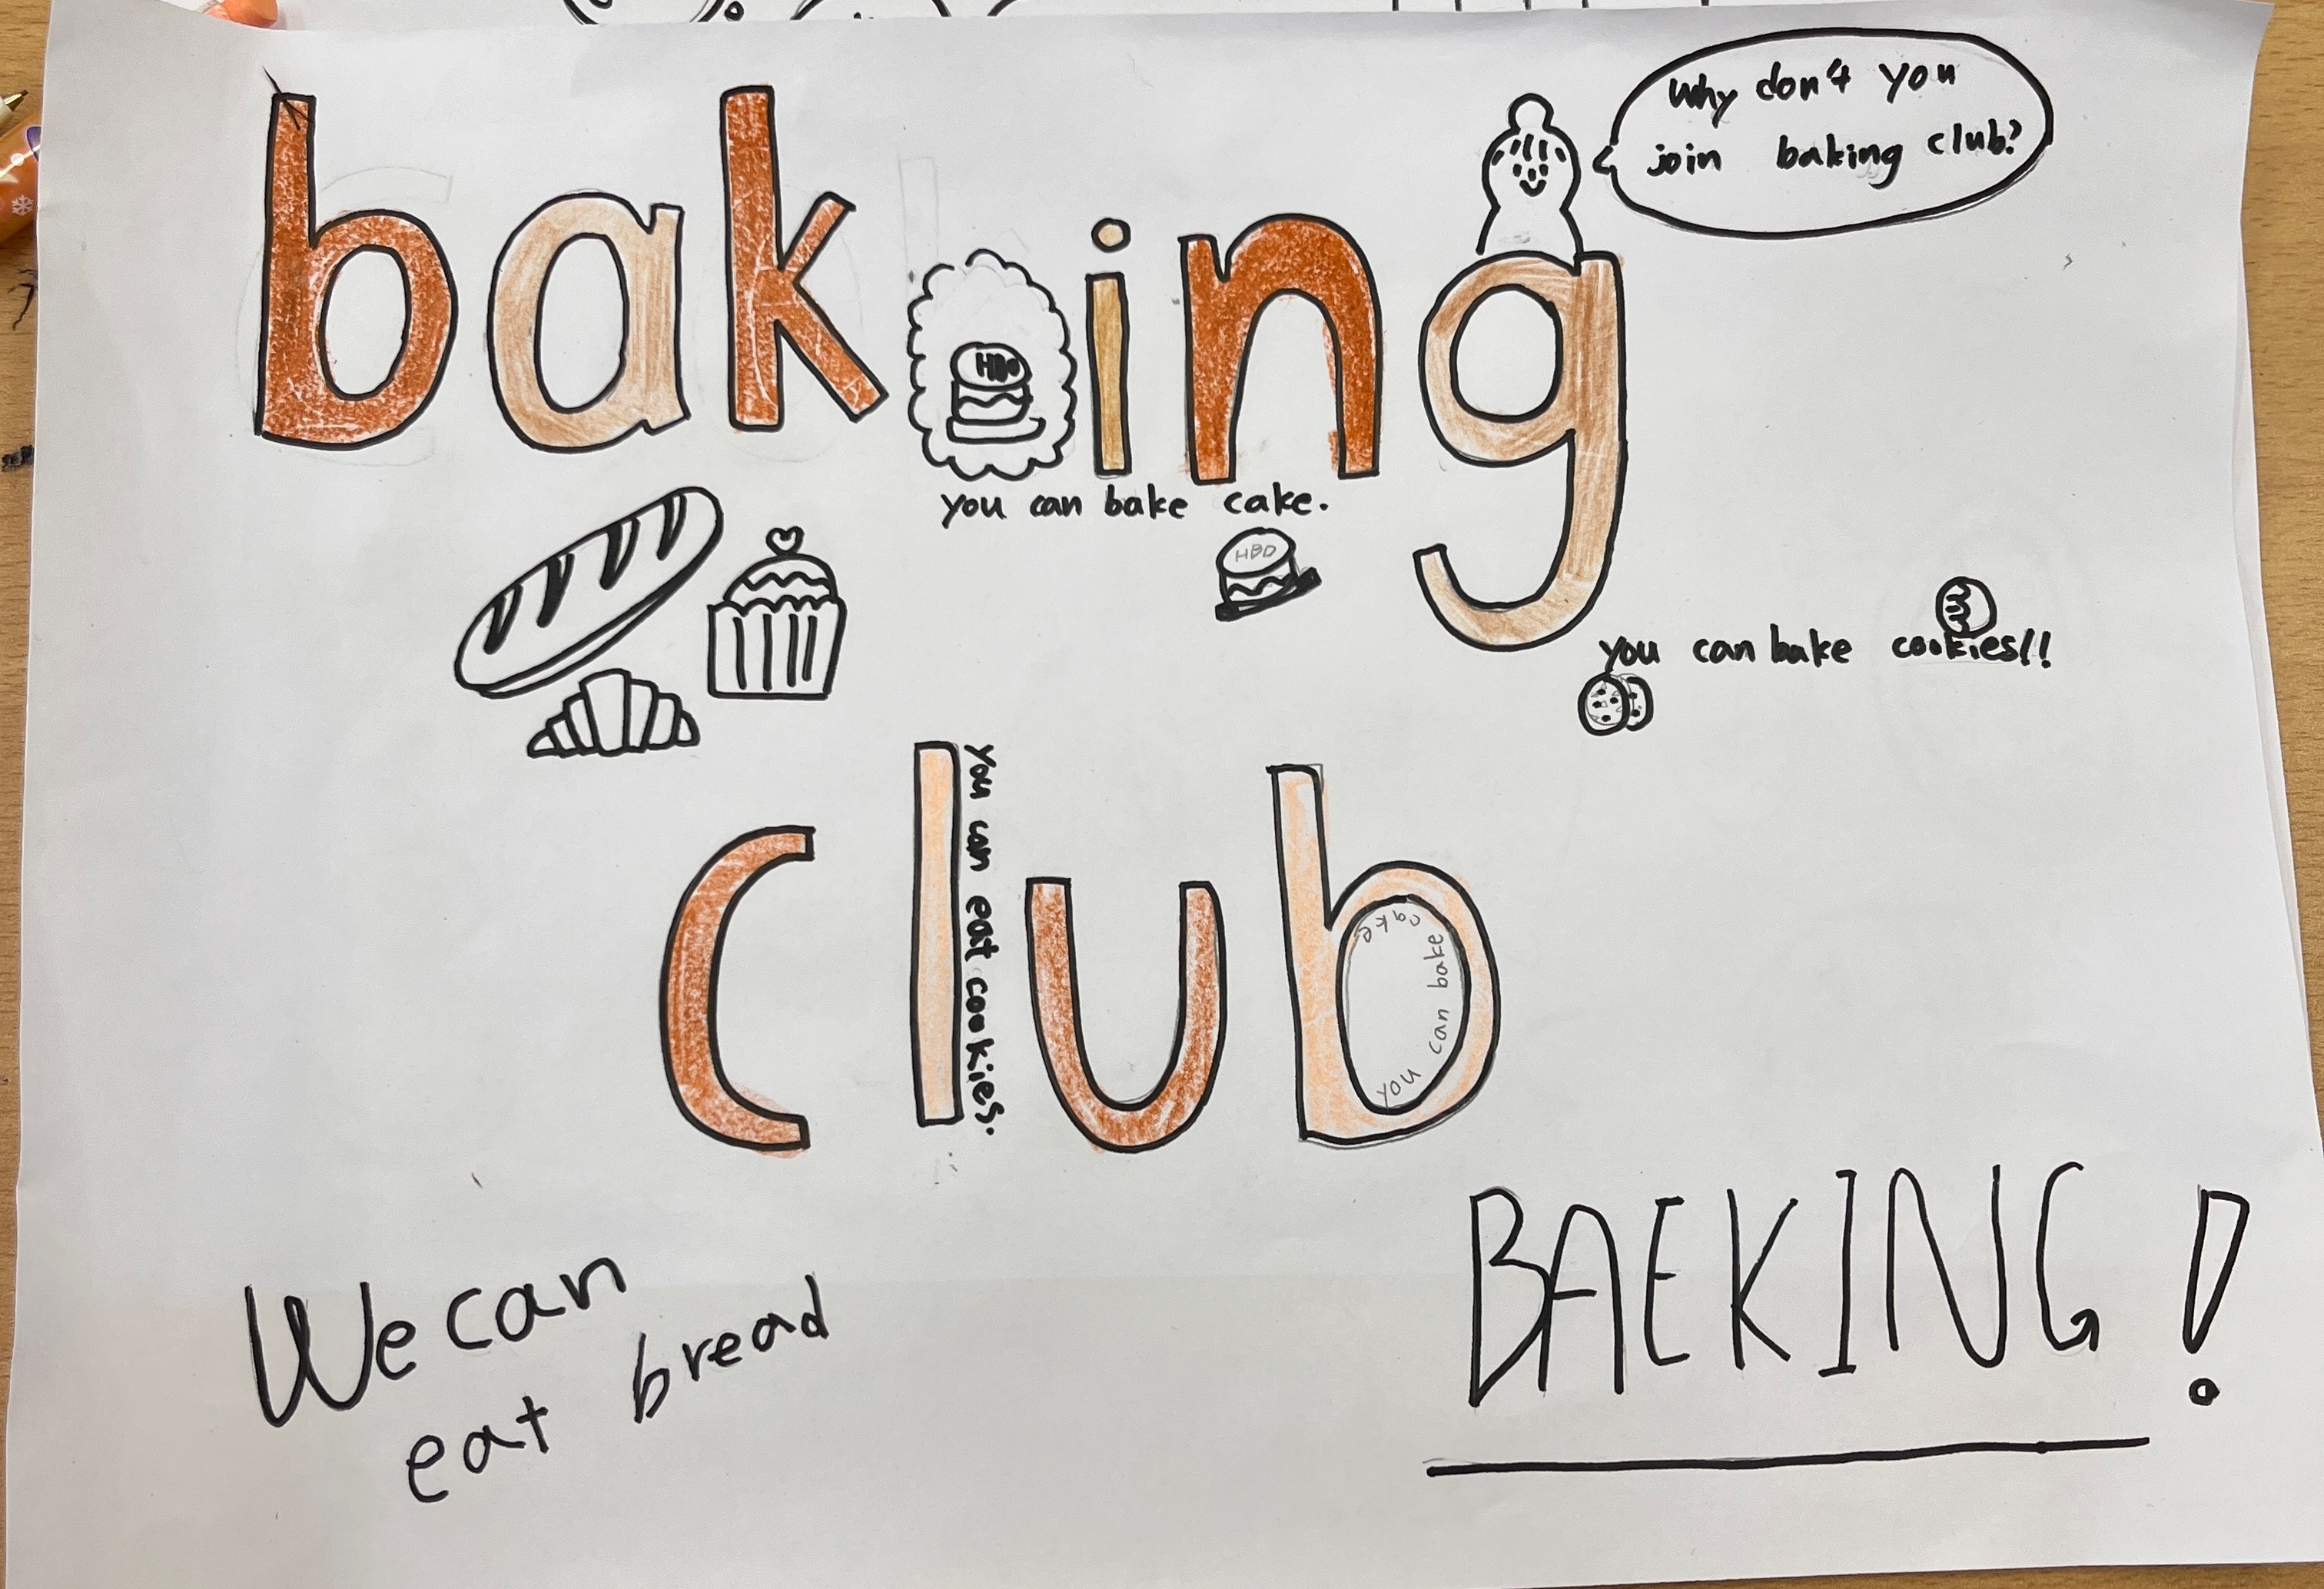 Why don't you
join baking club?
baking
HBD
you can bake cake.
HBD
you can bake cookies!!
club
you can eat cookies.
you can bake cake
We can
eat bread
BAEKING!